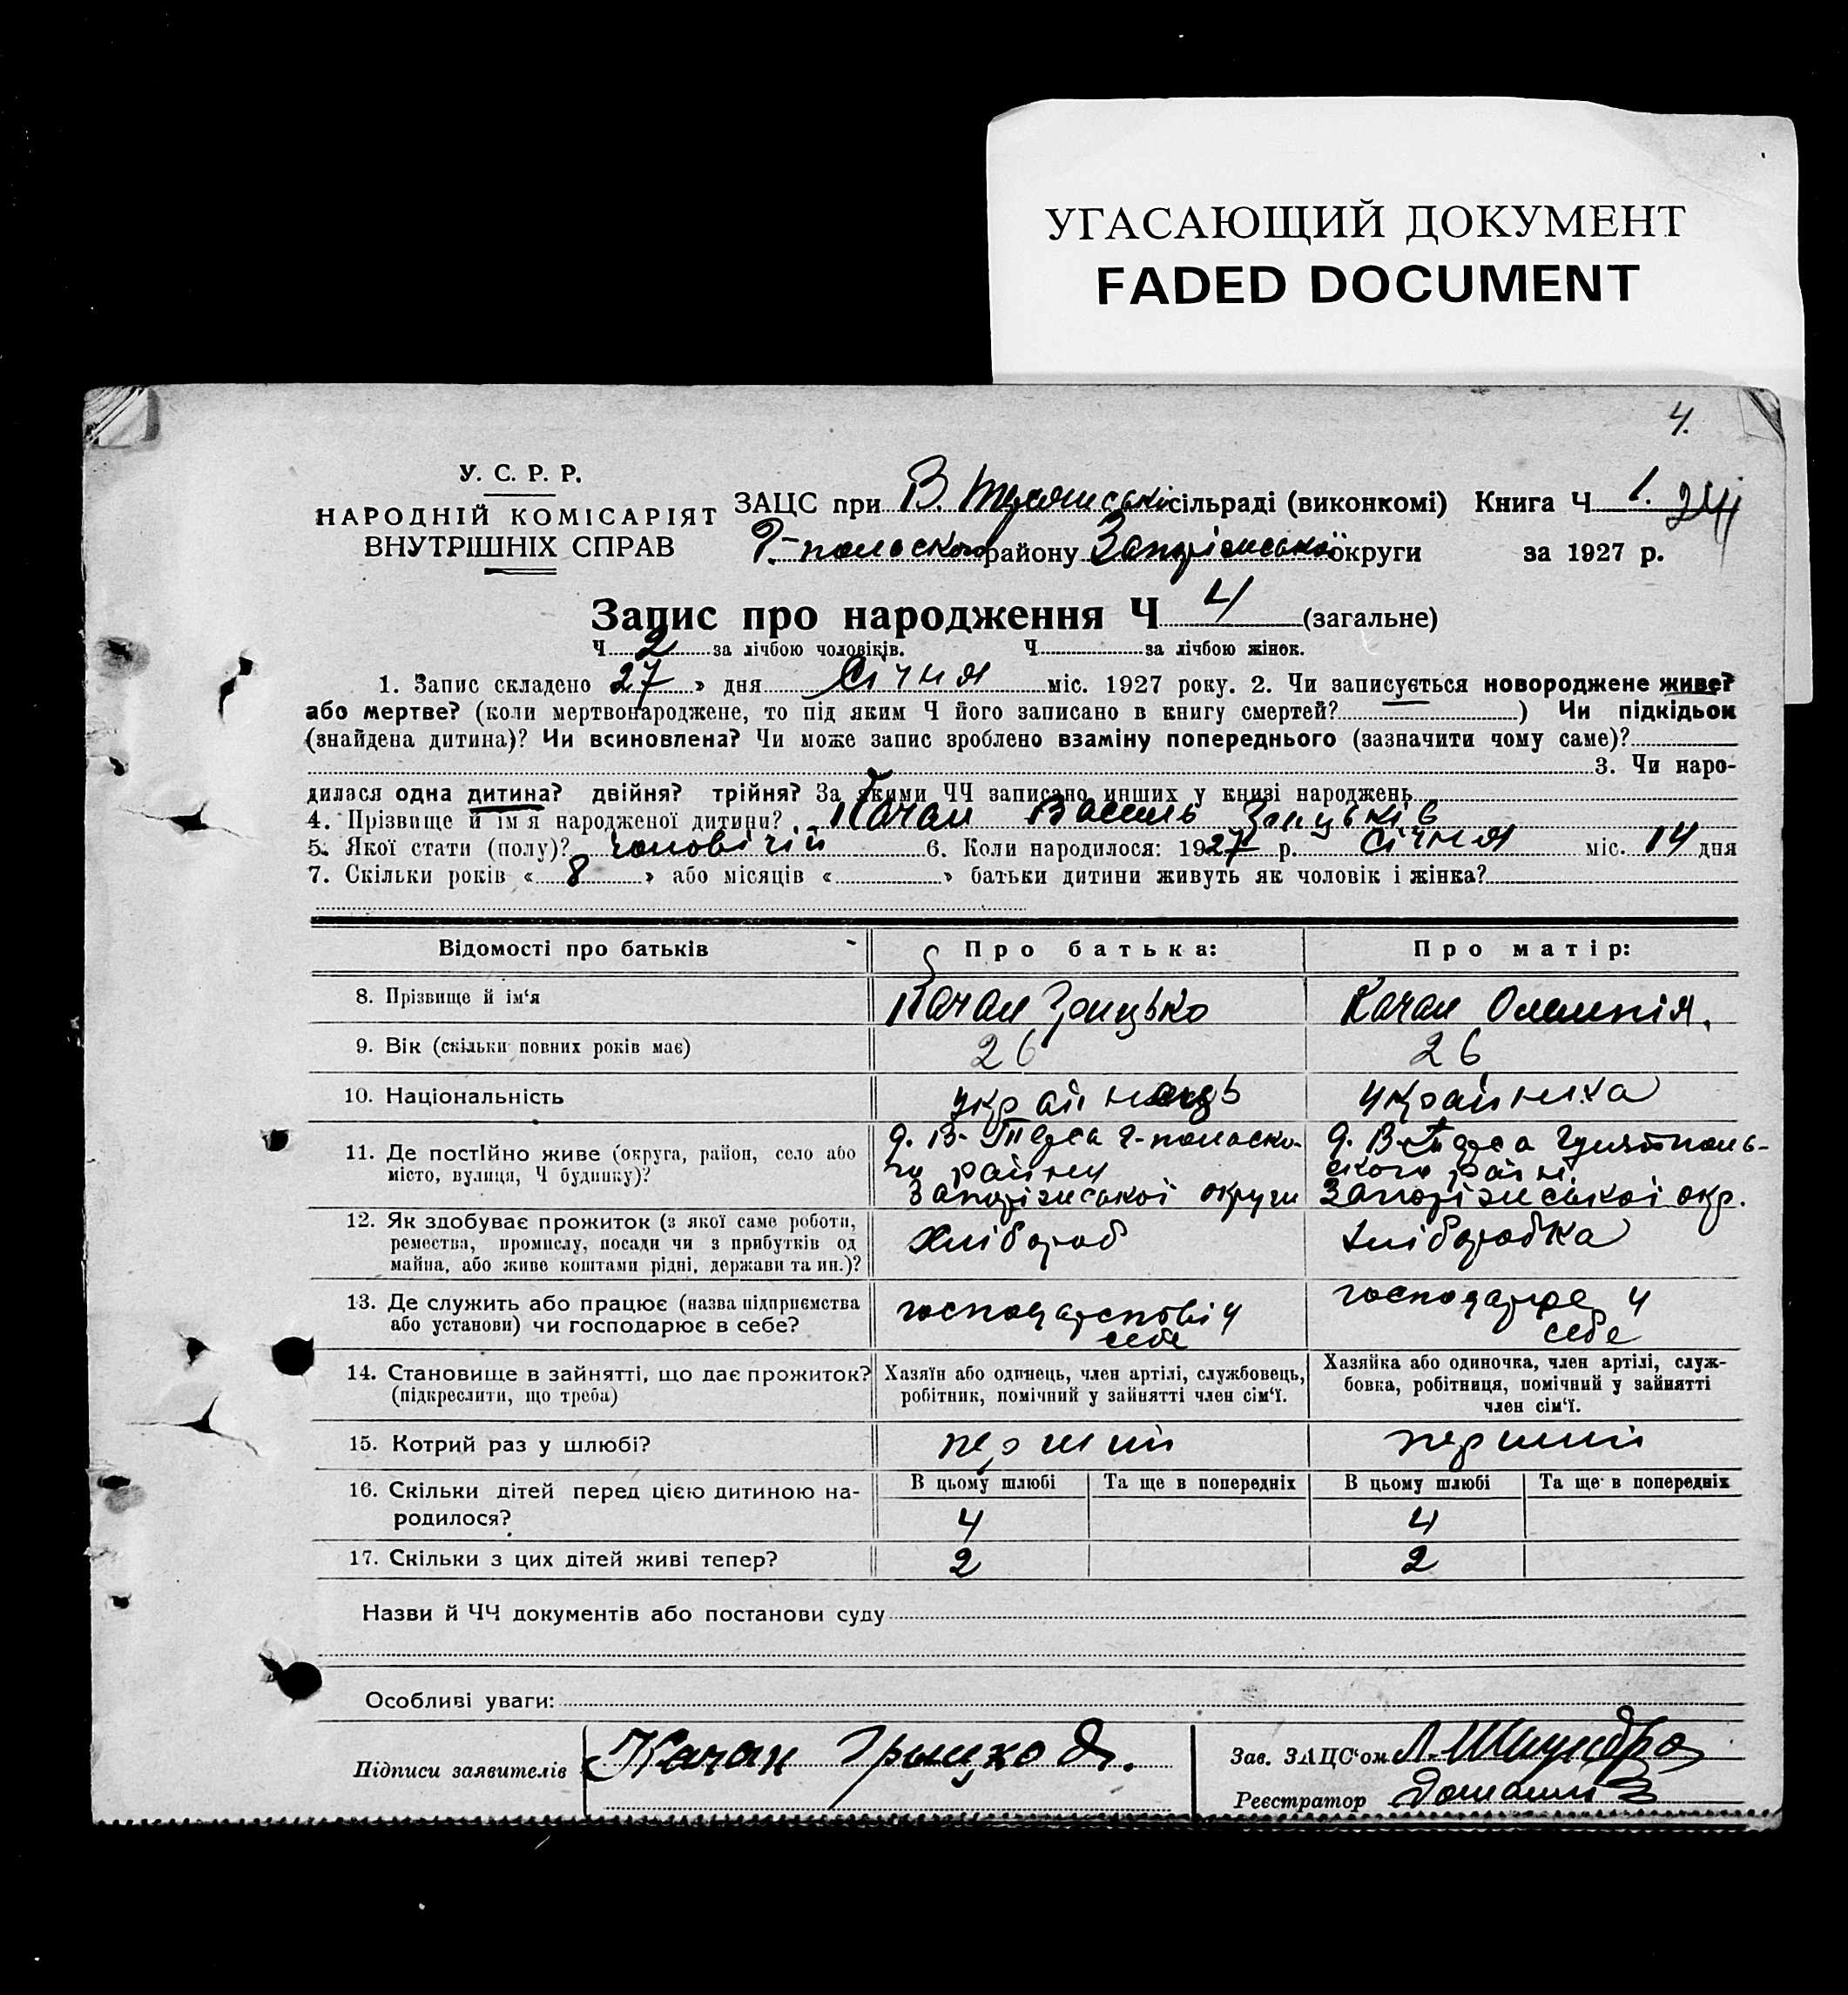 УГАСАЮЩИЙ ДОКУМЕНТ
FADED DOCUMENT
4.
У. С. Р. Р.
НАРОДНІЙ КОМІСАРІЯТ
ВНУТРІШНІХ СПРАВ
ЗАЦС при В. сільраді (виконкомі) Книга Ч 1. 24
Г-польского району Запоріжської округи за 1927 р.
Запис про народження Ч 4 (загальне)
Ч 2 за лічбою чоловіків. Ч за лічбою жінок.
1. Запис складено 27 » дня Січня міс. 1927 року. 2. Чи записується новороджене живе?
або мертве? (коли мертвонароджене, то під яким Ч його записано в книгу смертей?) Чи підкідьок
(знайдена дитина)? Чи всиновлена? Чи може запис зроблено взаміну попереднього (зазначити чому саме)?
3. Чи наро-
дилася одна дитина? двійня? трійня? За якими ЧЧ записано инших у книзі народжень
4. Прізвище й ім'я народженої дитини? Качан Василь Грицьків
5. Якої стати (полу)? Чоловічій 6. Коли народилося: 1927 р. Січня міс. 14 дня
7. Скільки років « 8 » або місяців « » батьки дитини живуть як чоловік і жінка?
Відомості про батьків Про батька: Про матір:
8. Прізвище й ім'я Качан Грицько Качан Олемпія.
9. Вік (скільки повних років має) 26 26
10. Національність українець українка
11. Де постійно живе (округа, район, село або
місто, вулиця, Ч будинку)?
с. В-Терса Г-польско-
го району
Запоріжської округи
с. В-Терса Гуляйполь-
ского райні
Запоріжської окр.
12. Як здобуває прожиток (з якої саме роботи,
ремества, промислу, посади чи з прибутків од
майна, або живе коштами рідні, держави та ин.)?
Хлібороб
Хліборобка
13. Де служить або працює (назва підприємства
або установи) чи господарює в себе?
у
себе
господарює у
себе
14. Становище в зайнятті, що дає прожиток?
(підкреслити, що треба)
Хазяїн або одинець, член артілі, службовець,
робітник, помічний у зайнятті член сім'ї.
Хазяйка або одиночка, член артілі, служ-
бовка, робітниця, помічний у зайнятті
член сім'ї.
15. Котрий раз у шлюбі? перший перший
16. Скільки дітей перед цією дитиною на-
родилося?
В цьому шлюбі Та ще в попередніх В цьому шлюбі Та ще в попередніх
4 4
17. Скільки з цих дітей живі тепер? 2 2
Назви й ЧЧ документів або постанови суду
Особливі уваги:
Підписи заявителів Качан Грыцко
Зав. ЗАЦС'ом
Реєстратор